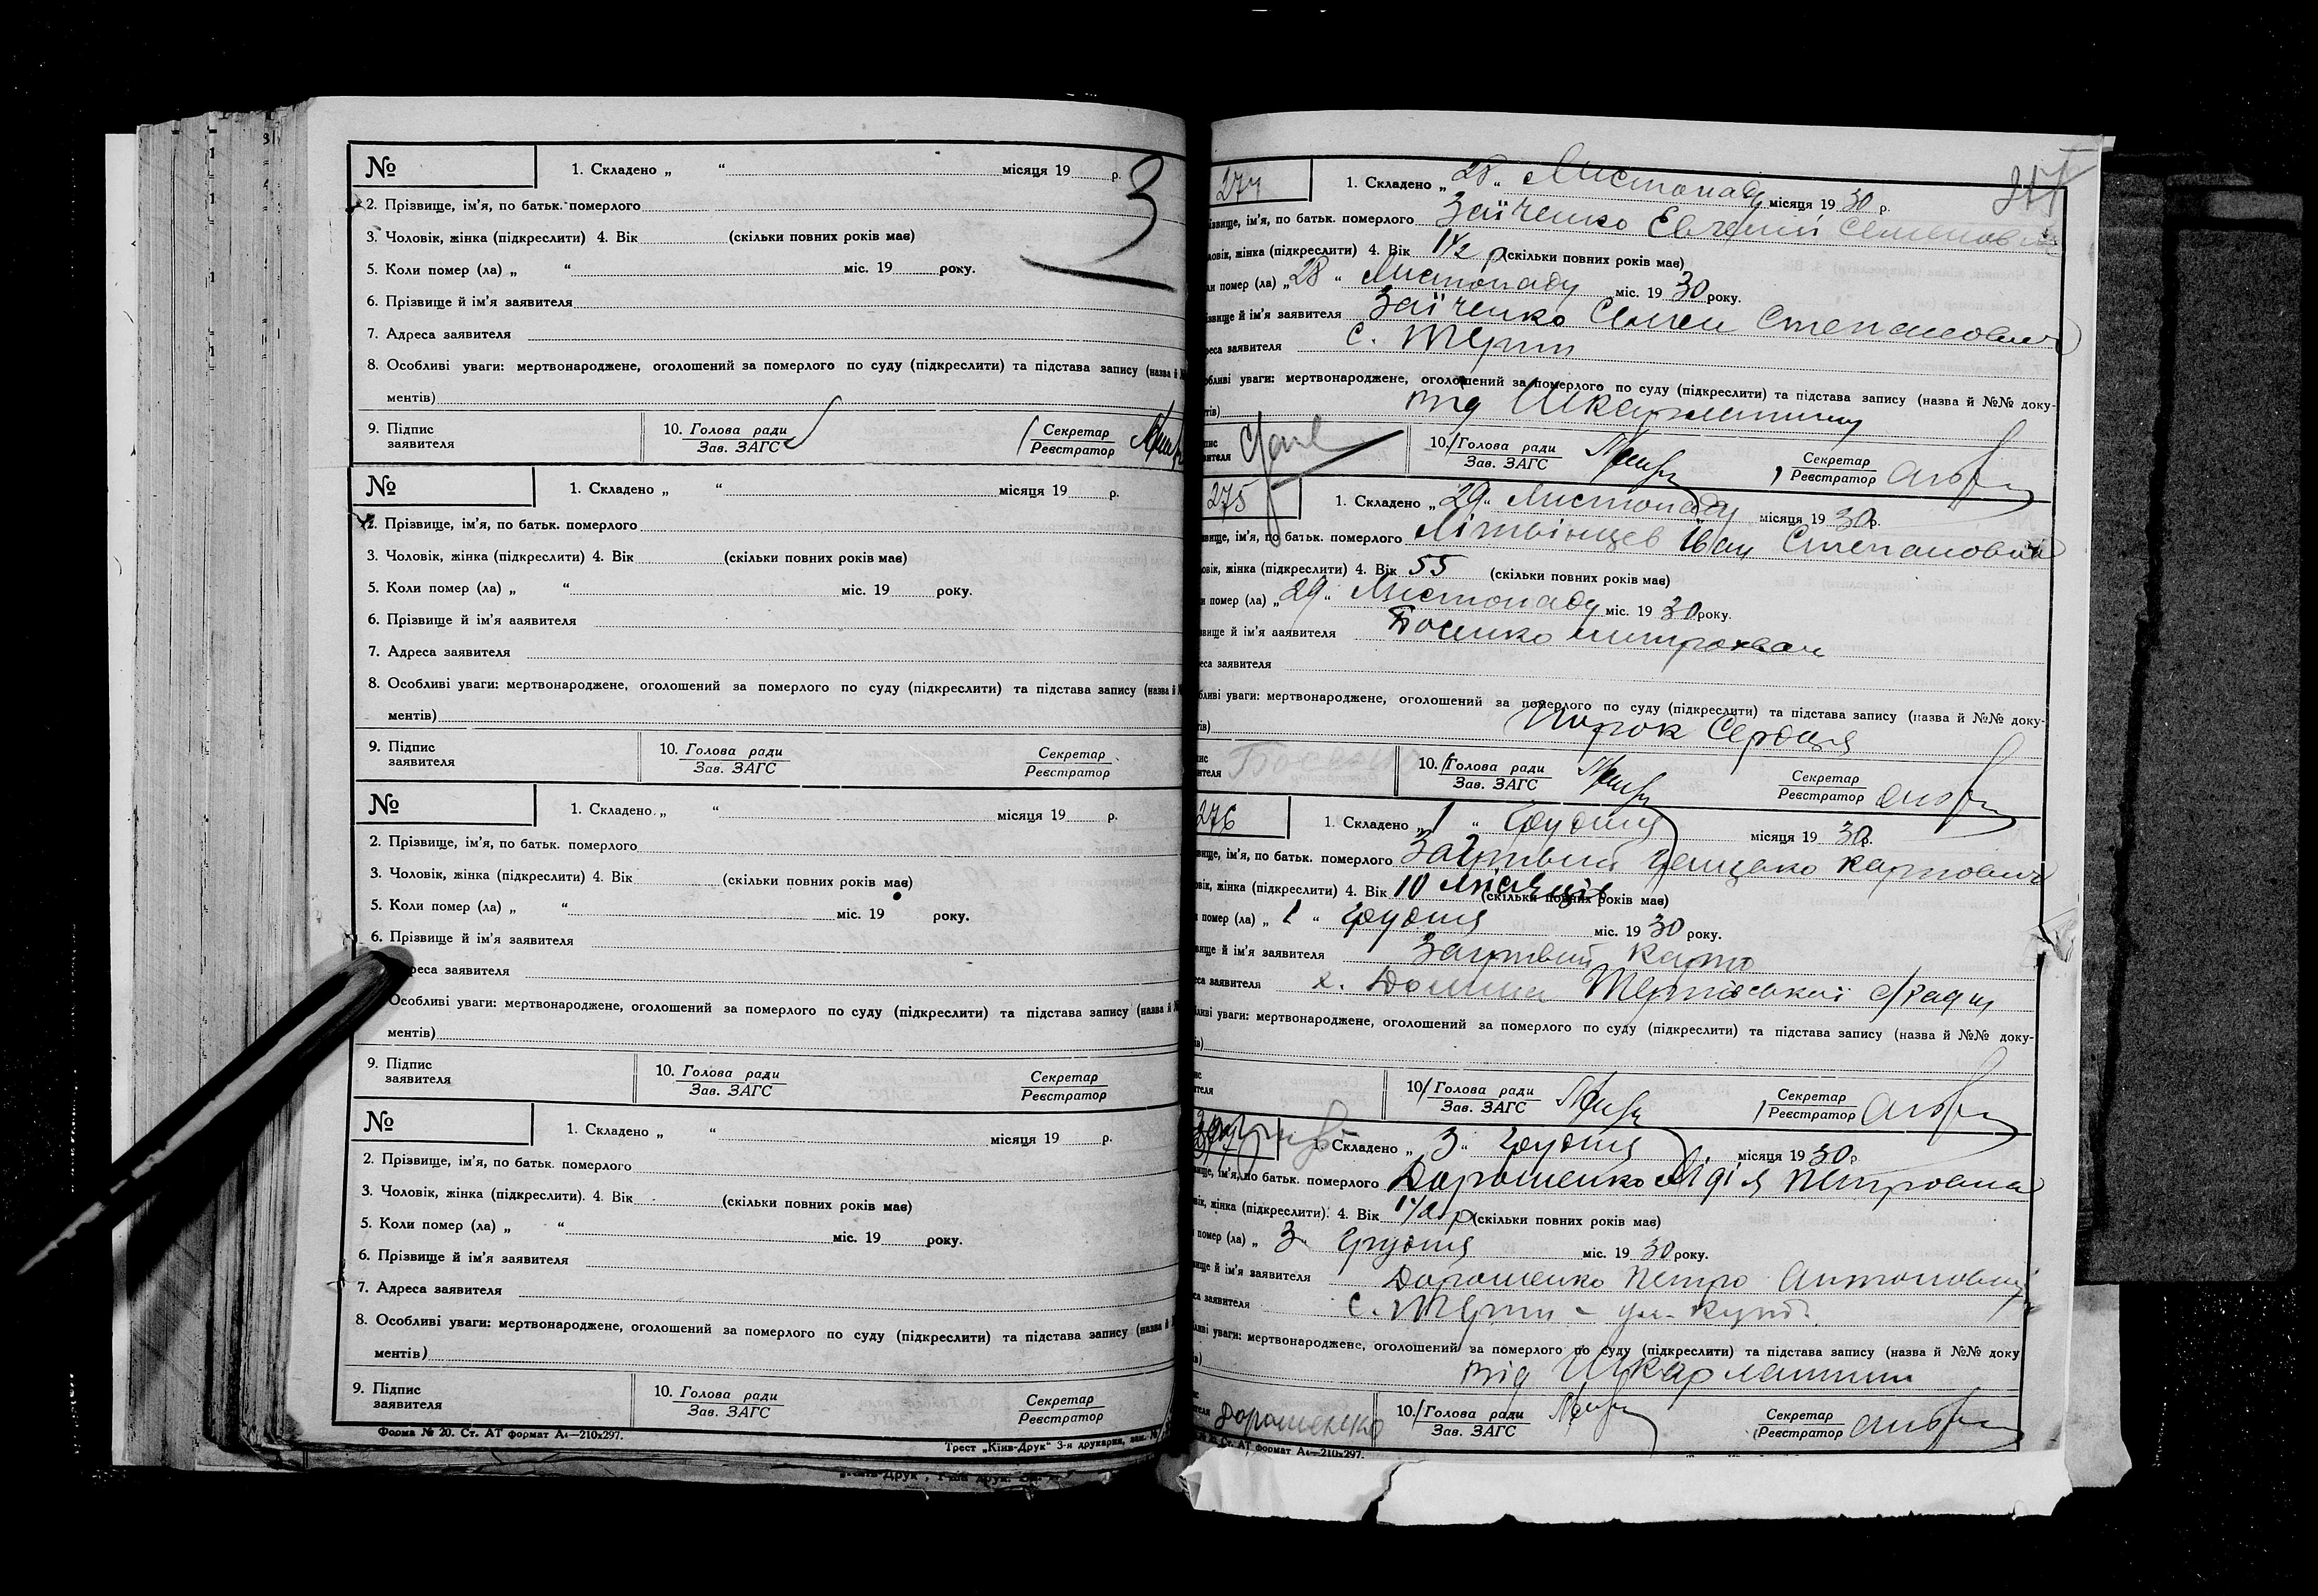 3
№ 1. Складено „ “ місяця 19 р.
2. Прізвище, ім'я, по батьк. померлого
3. Чоловік, жінка (підкреслити) 4. Вік (скільки повних років має)
5. Коли помер (ла) „ “ міс. 19 року.
6. Прізвище й ім'я заявителя
7. Адреса заявителя
8. Особливі уваги: мертвонароджене, оголошений за померлого по суду (підкреслити) та підстава запису (назва й
ментів)
9. Підпис заявителя 10. Голова ради Зав. ЗАГС Секретар Реєстратор
№ 1. Складено „ “ місяця 19 р.
2. Прізвище, ім'я, по батьк. померлого
3. Чоловік, жінка (підкреслити) 4. Вік (скільки повних років має)
5. Коли помер (ла) „ “ міс. 19 року.
6. Прізвище й ім'я ааявителя
7. Адреса заявителя
8. Особливі уваги: мертвонароджене, оголошений за померлого по суду (підкреслити) та підстава запису (назва й
ментів)
9. Підпис заявителя 10. Голова ради Зав. ЗАГС Секретар Реєстратор
№ 1. Складено „ “ місяця 19 р.
2. Прізвище, ім'я, по батьк. померлого
3. Чоловік, жінка (підкреслити) 4. Вік (скільки повних років має)
5. Коли помер (ла) „ “ міс. 19 року.
6. Прізвище й ім'я заявителя
реса заявителя
Особливі уваги: мертвонароджене, оголошений за померлого по суду (підкреслити) та підстава запису (назва й
ментів)
9. Підпис заявителя 10. Голова ради Зав. ЗАГС Секретар Реєстратор
№ 1. Складено „ “ місяця 19 р.
2. Прізвище, ім'я, по батьк. померлого
3. Чоловік, жінка (підкреслити). 4. Вік (скільки повних років має)
5. Коли помер (ла) „ “ міс. 19 року.
6. Прізвище й ім'я заявителя
7. Адреса заявителя
8. Особливі уваги: мертвонароджене, оголошений за померлого по суду (підкреслити) та підстава запису (назва й
ментів)
9. Підпис заявителя 10. Голова ради Зав. ЗАГС Секретар Реєстратор
Форма № 20. Ст. АТ формат А4—210х297. Трест „Київ-Друк“ 3-я друкарня, зам. №
274 1. Складено „28“ Листопаду місяця 1930 р.
ізвище, ім'я, по батьк. померлого Заїченко Евгений Семенович
ловік, жінка (підкреслити) 4. Вік 1½ р (скільки повних років має)
ли помер (ла) „28“ Листопаду міс. 1930 року.
ізвище й ім'я заявителя Заїченко Семен Степанович
реса заявителя с. Терни
обливі уваги: мертвонароджене, оголошений за померлого по суду (підкреслити) та підстава запису (назва й №№ доку-
тів) від Шкарлатини
10. Голова ради Зав. ЗАГС Секретар Реєстратор
275 1. Складено „29“ Листопаду місяця 1930 р.
звище, ім'я, по батьк. померлого Літвінцев Іван Степанович
овік, жінка (підкреслити) 4. Вік 55 (скільки повних років має)
и помер (ла) „29“ Листопаду міс. 1930 року.
звище й ім'я ааявителя Босенко митрохван
еса заявителя
бливі уваги: мертвонароджене, оголошений за померлого по суду (підкреслити) та підстава запису (назва й №№ доку-
ів) Порок Сердця
10. Голова ради Зав. ЗАГС Секретар Реєстратор
276 1. Складено „1“ Грудня місяця 1930 р.
вище, ім'я, по батьк. померлого Карпович
овік, жінка (підкреслити) 4. Вік 10 місяців (скільки повних років має)
помер (ла) „1“ Грудня міс. 1930 року.
вище й ім'я заявителя Карпо
са заявителя х. Долина Тернівської с/ради
ливі уваги: мертвонароджене, оголошений за померлого по суду (підкреслити) та підстава запису (назва й №№ доку-
ів)
10. Голова ради Зав. ЗАГС Секретар Реєстратор
1. Складено „3“ Грудня місяця 1930 р.
вище, ім'я, по батьк. померлого Дорошенко Лідія Петровна
вік, жінка (підкреслити). 4. Вік (скільки повних років має)
помер (ла) „3“ Грудня міс. 1930 року.
вище й ім'я заявителя Дорошенко Петро Антонович
са заявителя с. Терни -
ливі уваги: мертвонароджене, оголошений за померлого по суду (підкреслити) та підстава запису (назва й №№ доку
в) від Шкарлатини
Дорошенко 10. Голова ради Зав. ЗАГС Секретар Реєстратор
Ст. АТ формат А4—210х297.